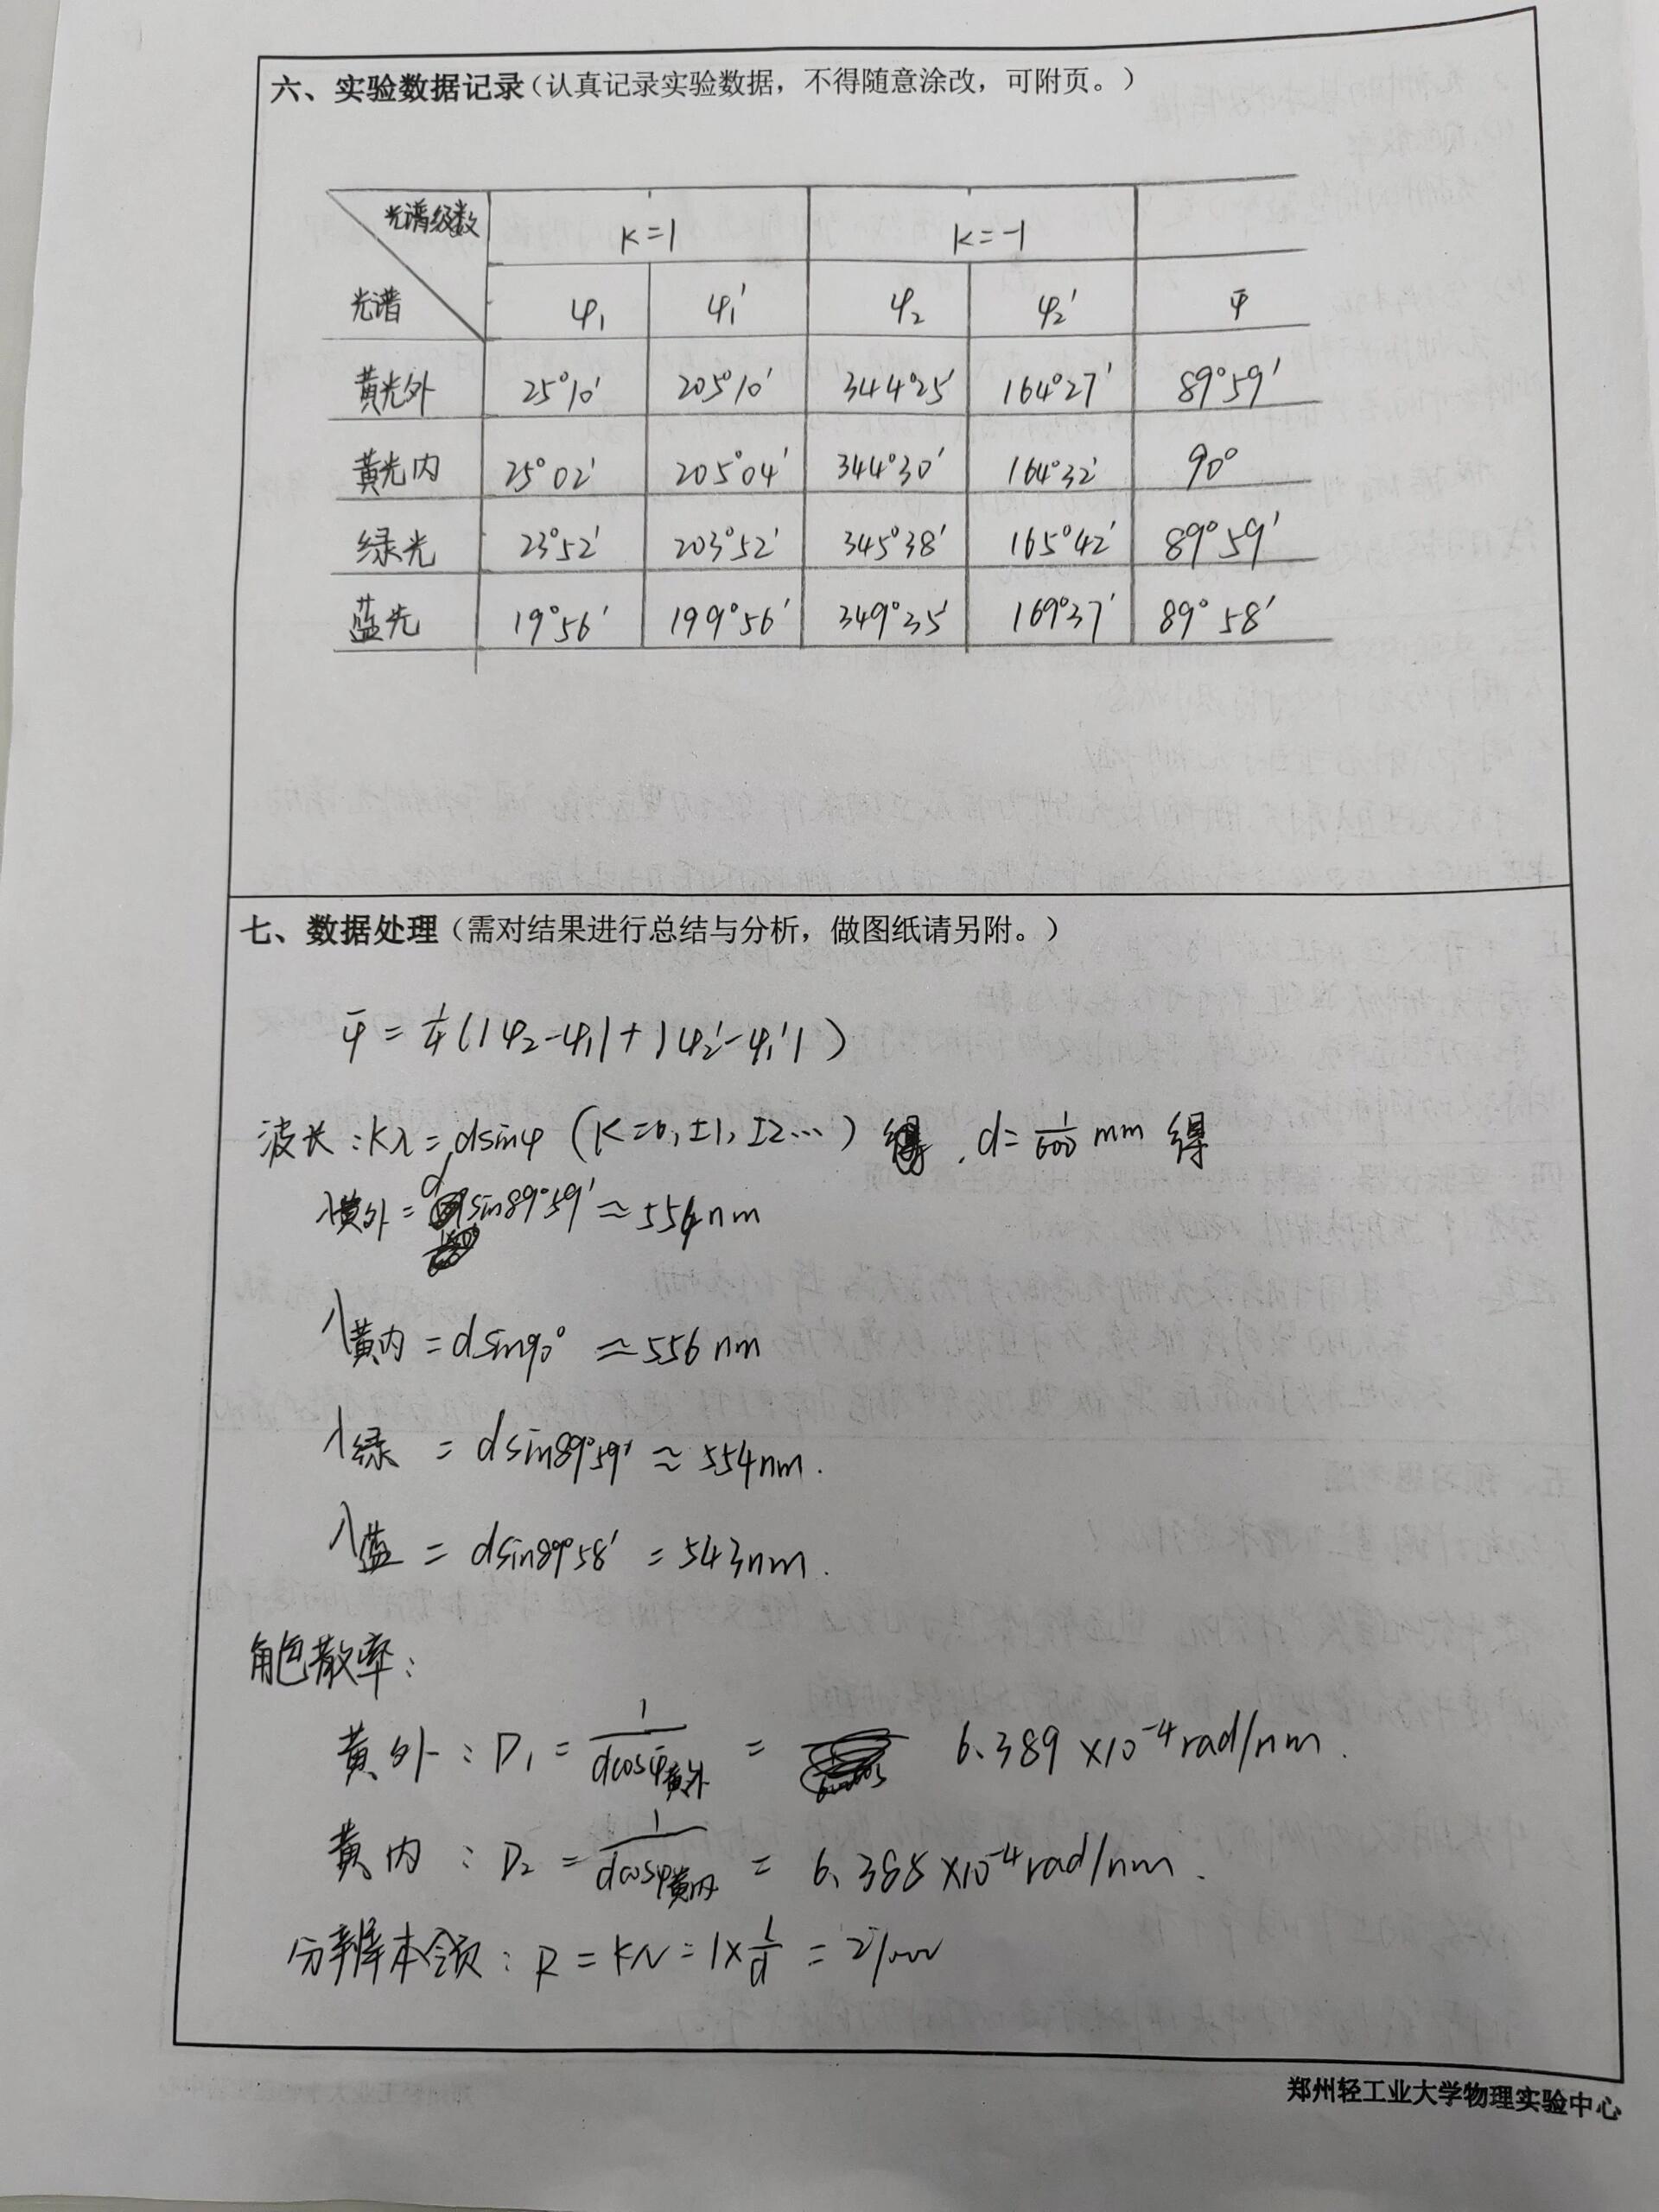 六、实验数据记录（认真记录实验数据，不得随意涂改，可附页。）
光谱级数 K=1 K=-1
光谱 φ₁ φ₁′ φ₂ φ₂′ φ̄
黄光外 25°10′ 205°10′ 344°25′ 164°27′ 89°59′
黄光内 25°02′ 205°04′ 344°30′ 164°32′ 90°
绿光 23°52′ 203°52′ 345°38′ 165°42′ 89°59′
蓝光 19°56′ 199°56′ 349°35′ 169°37′ 89°58′
七、数据处理（需对结果进行总结与分析，做图纸请另附。）
φ̄ = 1/4(|φ₂-φ₁|+|φ₂′-φ₁′|)
波长：Kλ=dsinφ (K=0,±1,±2…) , d=1/600 mm 得
λ黄外 = dsin89°59′ ≈ 554nm
λ黄内 = dsin90° ≈ 556nm
λ绿 = dsin89°59′ ≈ 554nm.
λ蓝 = dsin89°58′ = 543nm.
角色散率：
黄外：D₁ = 1/dcosφ̄黄外 = 6.389×10⁻⁴rad/nm.
黄内：D₂ = 1/dcosφ黄内 = 6.388×10⁻⁴rad/nm.
分辨本领：R=KN=1×L/d=
郑州轻工业大学物理实验中心